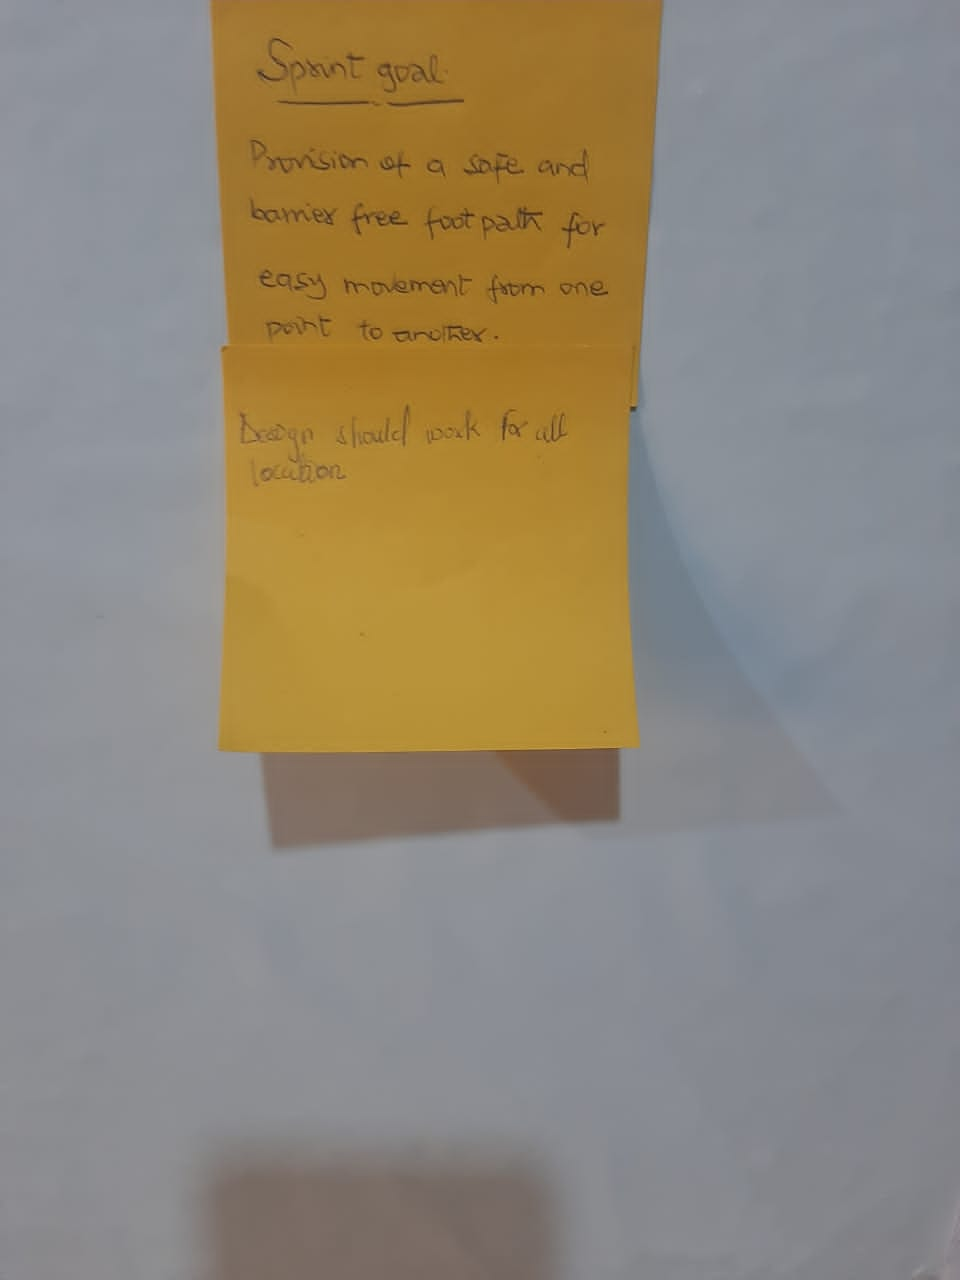 Sprint goal
Provision of a safe and
barrier free footpath for
easy movement from one
point to another.
Design should work for all
location